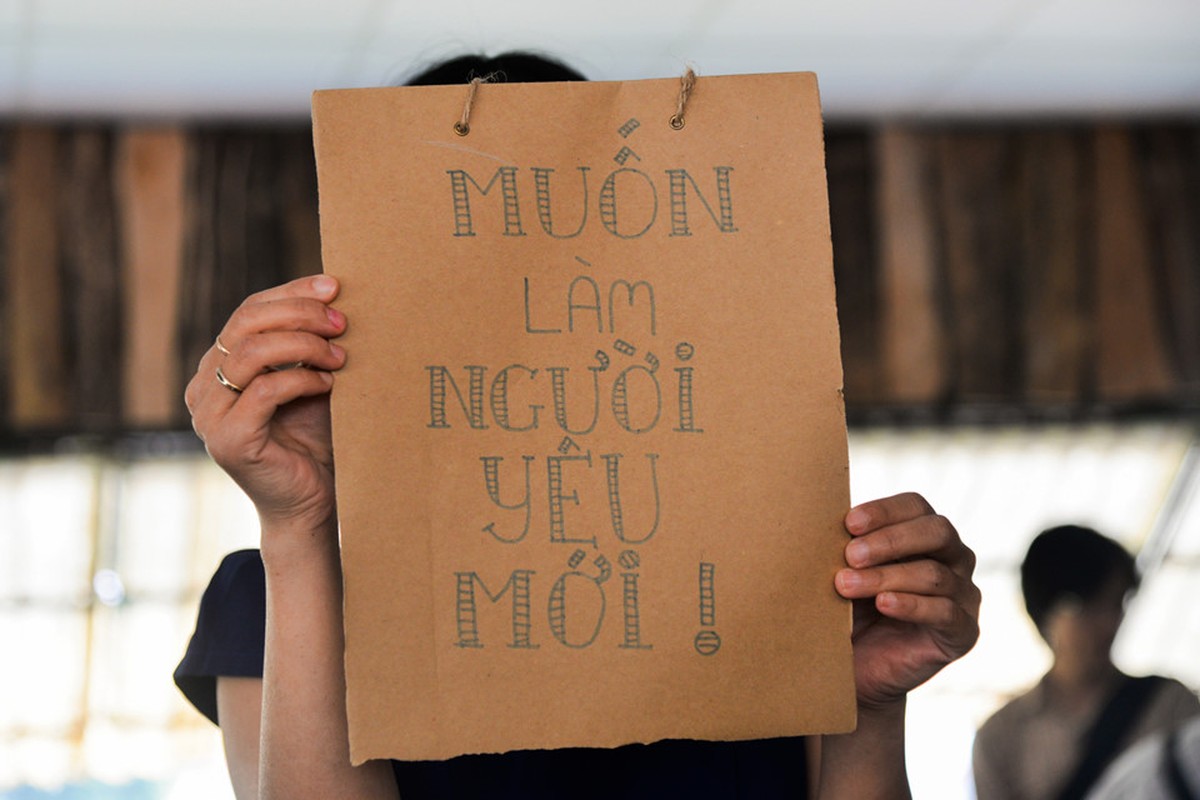 MUỐN
LÀM
NGƯỜI
YÊU
MỚI !